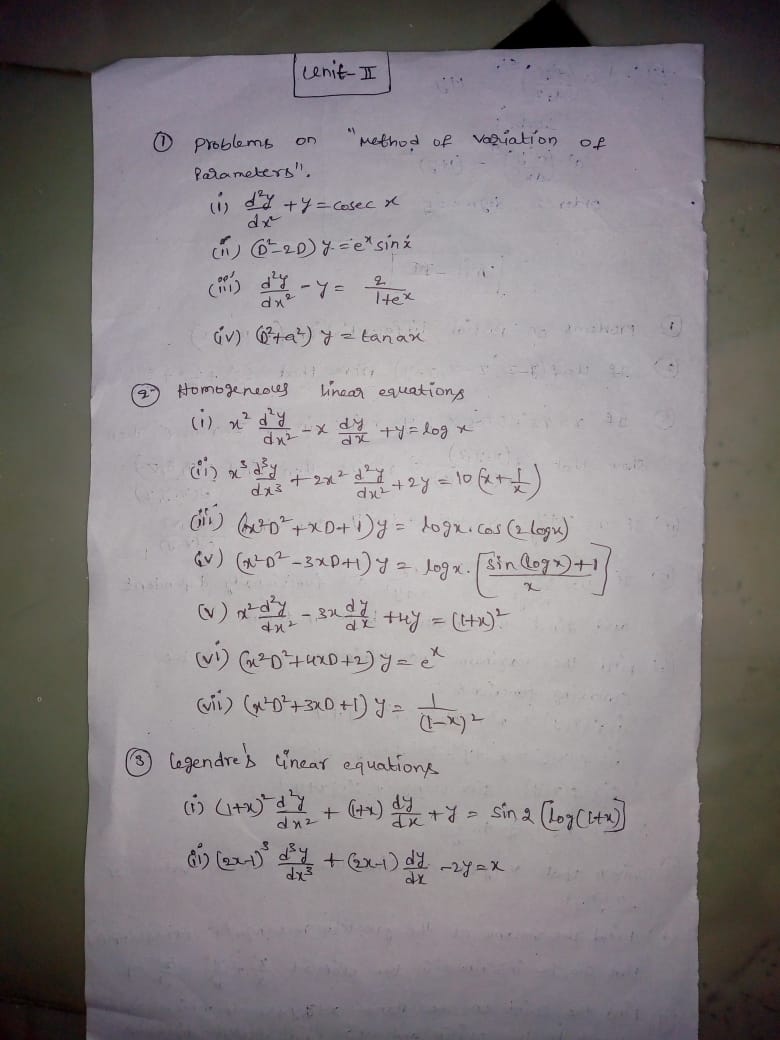 Unit-II
① Problems on "Method of Variation of
Parameters".
(i) d²y/dx² + y = cosec x
(ii) (D²-2D) y = eˣ sin x
(iii) d²y/dx² - y = 2/(1+eˣ)
(iv) (D²+a²) y = tan ax
② Homogeneous linear equations
(i) x² d²y/dx² - x dy/dx + y = log x
(ii) x³ d³y/dx³ + 2x² d²y/dx² + 2y = 10 (x + 1/x)
(iii) (x²D² + xD + 1) y = log x. cos (2 log x)
(iv) (x²D² - 3xD + 1) y = log x. [(sin (log x) + 1)/x]
(v) x² d²y/dx² - 3x dy/dx + 4y = (1+x)²
(vi) (x²D² + 4xD + 2) y = eˣ
(vii) (x²D² + 3xD + 1) y = 1/(1-x)²
③ Legendre's Linear equations
(i) (1+x)² d²y/dx² + (1+x) dy/dx + y = sin 2 [log (1+x)]
(ii) (2x-1)³ d³y/dx³ + (2x-1) dy/dx - 2y = x